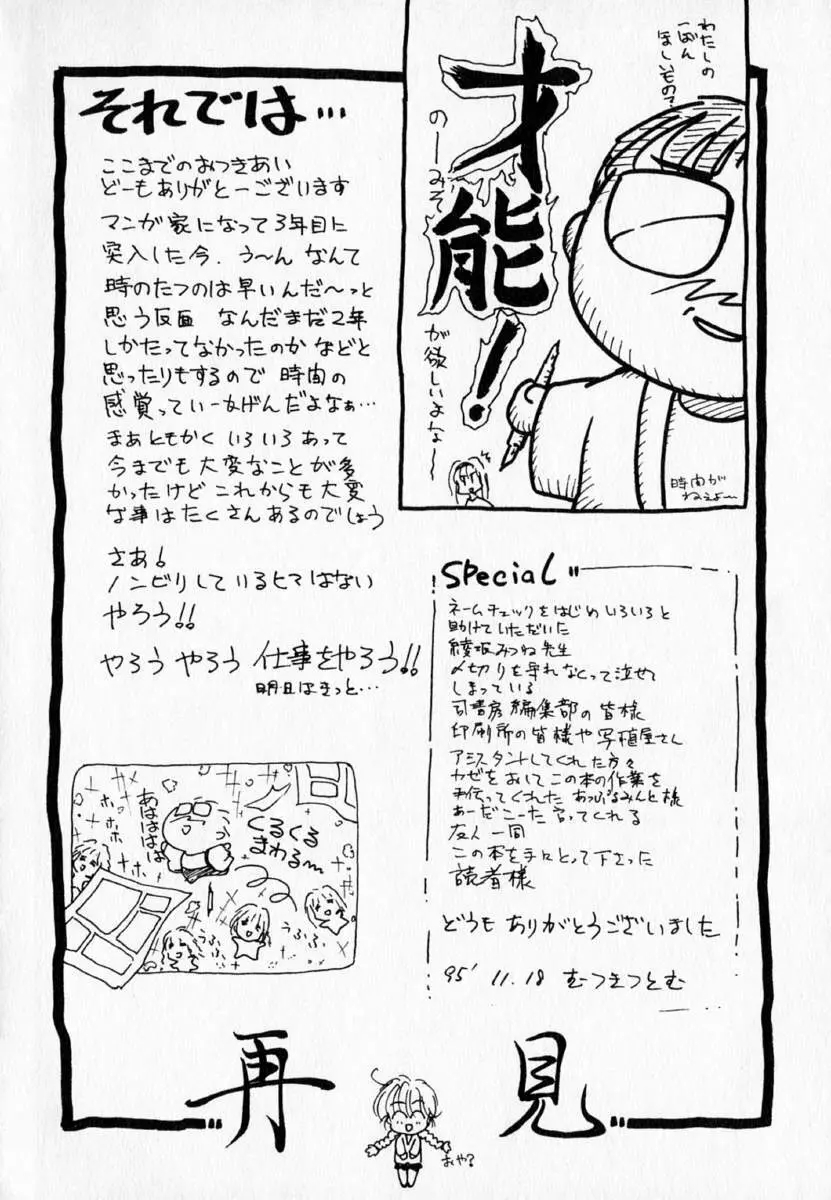 わたしの
一ばん
ほしいもの?
才能!
のーみそ
が欲しいよな〜
時間が
ねぇよ〜
それでは…
ここまでのおつきあい
どーもありがとーございます
マンガ家になって3年目に
突入した今、う〜ん なんて
時のたつのは早いんだ〜っと
思う反面 なんだまだ2年
しかたってなかったのか などと
思ったりもするので 時間の
感覚っていーかげんだよなぁ…
まぁともかく いろいろあって
今までも大変なことが多
かったけど これからも大変
な事はたくさんあるのでしょう
さあ!
ノンビリしているヒマはない
やろう!!
やろう やろう 仕事をやろう!!
明日はきっと…
Special
ネームチェックをはじめ いろいろと
助けていただいた
綾坂みつね先生
〆切りを守れなくって泣せて
しまっている
司書房編集部の皆様
印刷所の皆様や写植屋さん
アシスタントしてくれた方々
カゼをおして この本の作業を
手伝ってくれた あっぷるみんと様
あーだこーだ言ってくれる
友人一同
この本を手にとって下さった
読者様
どうも ありがとうございました
95' 11.18 むつきつとむ
あはははは
ホホホ
くるくる
まわる〜
うふふ
再見
おや?